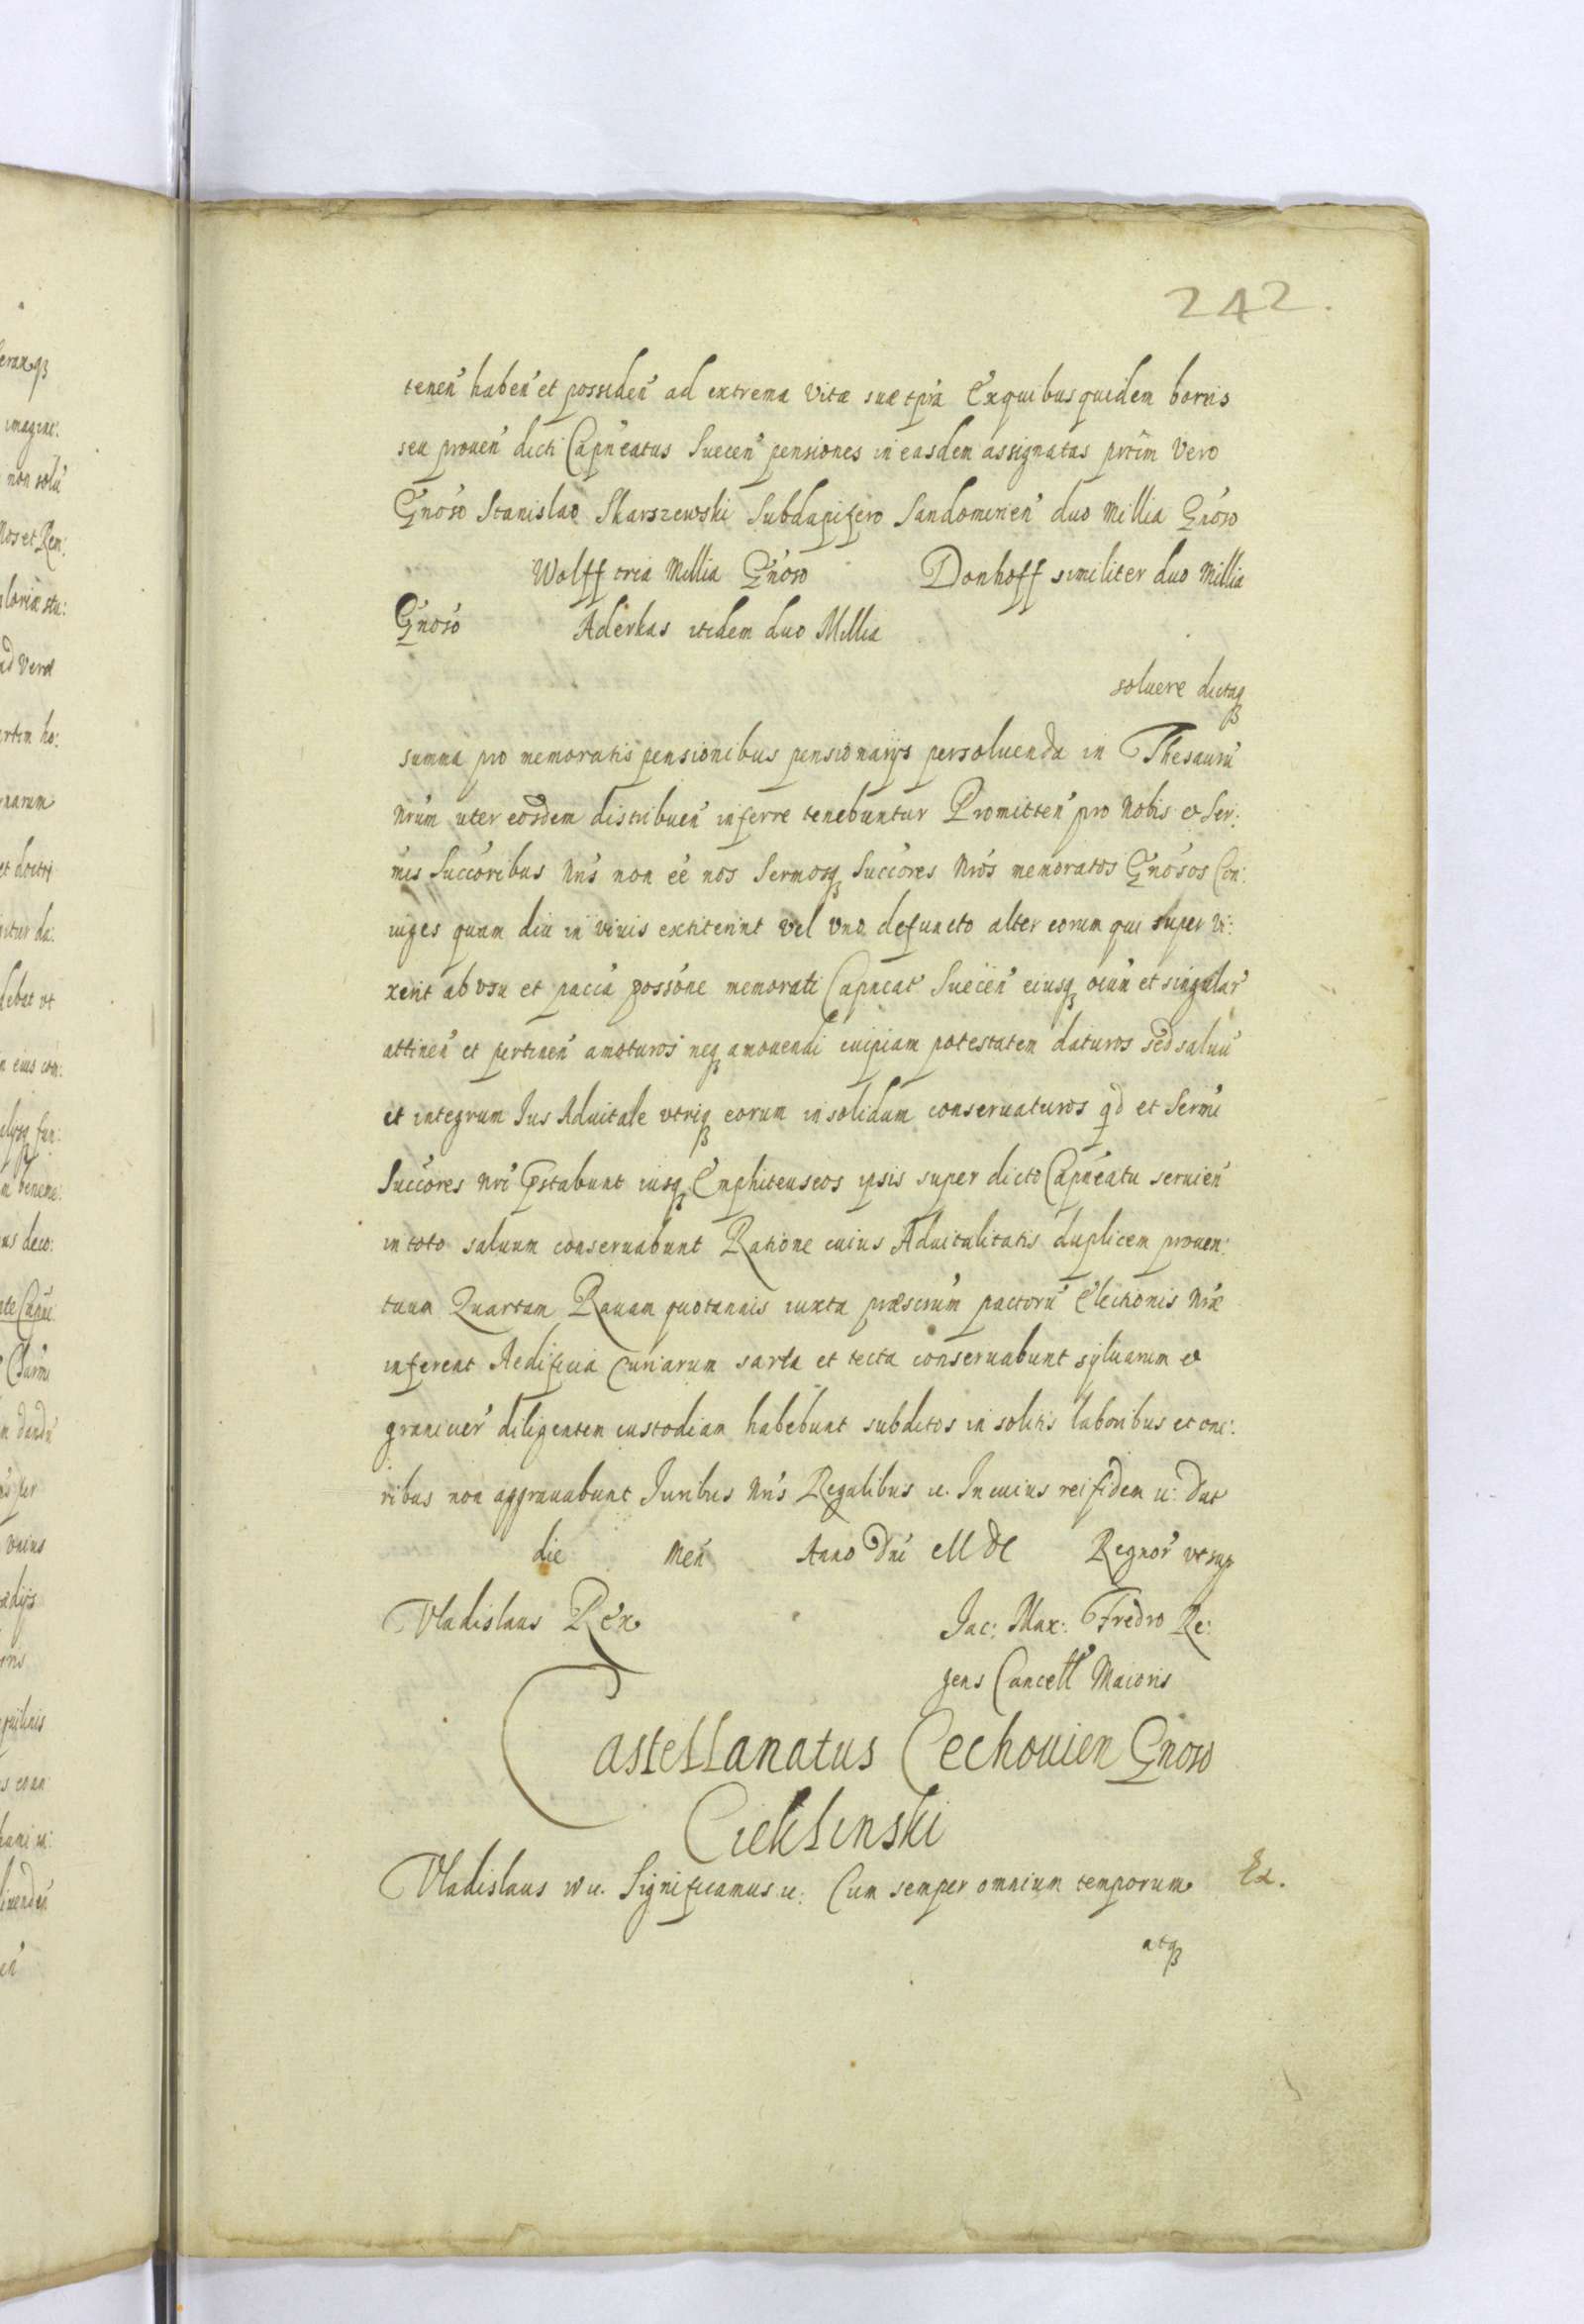 242.
tenen̄ haben̄ et possiden̄ ad extrema vitæ suæ tp̄ra Ex quibus quidem bonis
seu prouen̄ dicti Capn̄eatus Suecen̄ pensiones in easdem assignatas prīm vero
Gn̄oso Stanislao Skarszewski Subdapifero Sandomirien̄ duo Millia Gn̄oso
Wolff tria Millia Gn̄oso Donhoff similiter duo Millia
Gn̄oso Aderkas itidem duo Millia
soluere dictaq̨
summa pro memoratis pensionibus pensionarijs persoluenda in Thesaurū
Nrūm uter eosdem distribuen̄ inferre tenebuntur Promitten̄ pro Nobis et Ser:
mis Succōribus Nrīs non eē nos Sermosq̨ Succōres Nrōs memoratos Gn̄osos Con:
iuges quam diu in viuis extiterint vel vno defuncto alter eorum qui super vi:
xerit ab vsu et paccā possōne memorati Capneat̄ Suecen̄ eiusq̨ oiūm et singular̄
attinen̄ et pertinen̄ amoturos neq̨ amouendi cuipiam potestatem daturos sed saluū
et integrum Ius Aduitale vtriq̨ eorum in solidum conseruaturos qd̄ et Sermī
Succōres Nrī p̄stabunt iusq̨ Emphiteuseos ipsis super dicto Capn̄eatu seruien̄
in toto saluum conseruabunt Ratione cuius Aduitalitatis duplicem prouen:
tuum Quartam Rauam quotannis iuxta præscrūm pactorū Electionis Nræ
inferent Aedificia Curiarum sarta et tecta conseruabunt syluarum et
graniuer̄ diligentem custodiam habebunt subditos in solitis laboribus et one:
ribus non aggrauabunt Iuribus Nrīs Regalibus u. In cuius rei fidem u: Dat
die Men̄ Anno Dnī MDC Regnor̄ vt sup
Vladislaus Rex Jac: Max: Fredro Re:
gens Cancell̄ Maioris
Castellanatus Cechouien Gnoso
Cieklinski
Vladislaus w u. Significamus u: Cum semper omnium temporum Ex.
atq̨